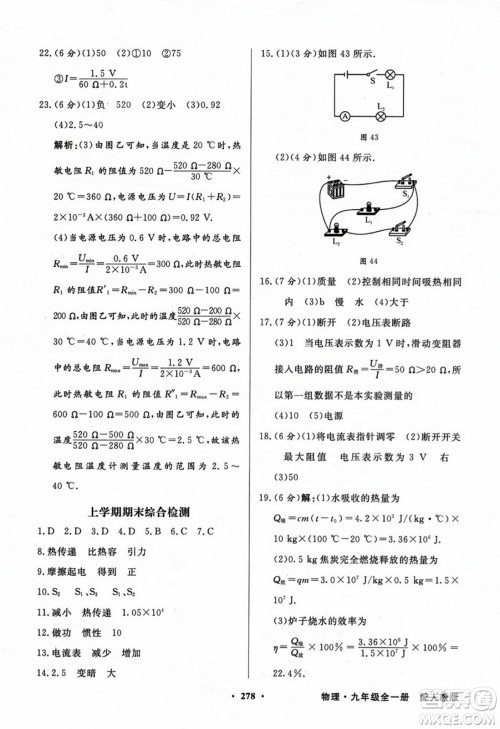 22.(6分)(1)50 (2)①1 ②75
③I=1.5 V/(60 Ω+0.2x)
23.(6分)(1)负 520 (2)变小 (3)0.92
(4)2.5~40
解析:(3)由图乙可知,当温度是 20 ℃时,热
敏电阻 R₁ 的阻值为 520 Ω-(520 Ω-280 Ω)/30 ℃×
20 ℃=360 Ω,电源电压为 U=I(R₁+R₂)=
2×10⁻³ A×(360 Ω+100 Ω)=0.92 V.
(4)当电源电压为 0.6 V 时,电路的总电阻
Rmin=Umin/I=0.6 V/(2×10⁻³ A)=300 Ω,此时热敏电阻
R₁ 的阻值 R′₁=Rmin-R₂=300 Ω-100 Ω=
200 Ω,由图乙可知,此时的温度为
(520 Ω-200 Ω)/((520 Ω-280 Ω)/30 ℃)=40 ℃.当电源电压为 1.2 V
时,电路的总电阻 Rmax=Umax/I=1.2 V/(2×10⁻³ A)=
600 Ω,此时热敏电阻 R₁ 的阻值 R″₁=Rmax-
R₂=600 Ω-100 Ω=500 Ω,此时的温度为
(520 Ω-500 Ω)/((520 Ω-280 Ω)/30 ℃)=2.5 ℃.故该热敏电阻
温度计能测量温度的范围是 2.5~40 ℃.
上学期期末综合检测
1.D 2.D 3.C 4.A 5.D 6.C 7.C
8.热传递 比热容 引力
9.摩擦起电 得到 正
10.S₂ S₁、S₂ S₁、S₃
11.减小 热传递 1.05×10⁴
12.做功 惯性 10
13.电流表 减小 0.5
14.2.5 变暗 大
15.(1)(3分)如图 43 所示.
S L₁ A L₂
图 43
(2)(4分)如图 44 所示.
+ - S₁ L₁ L₂ S₂
图 44
16.(7分)(1)质量 (2)控制相同时间吸热相同
内 (3)b 慢 水 (4)大于
17.(7分)(1)断开 (2)电压表断路
(3)1 当电压表示数为 1 V 时,滑动变阻器
接入电路的阻值 R滑=U滑/I=25 Ω>20 Ω,所
以第一组数据不是本次实验测量的
(4)10 (5)电源
18.(6分)(1)将电流表指针调零 (2)断开开关
最大阻值 使电压表示数为 3 V 右
(3)50
19.(6分)解:(1)水吸收的热量为
Q吸=cm(t-t₀)=4.2×10³ J/(kg·℃)×10
kg×(100 ℃-20 ℃)=3.36×10⁶ J.
(2)0.5 kg 焦炭完全燃烧释放的热量为
Q放=mq=0.5 kg×3×10⁷ J/kg=1.5×10⁷
J.
(3)炉子烧水的效率为
η=Q吸/Q放×100%=3.36×10⁶ J/(1.5×10⁷ J)×100%=
22.4%.
• 278 •
物理·九年级全一册 配人教版